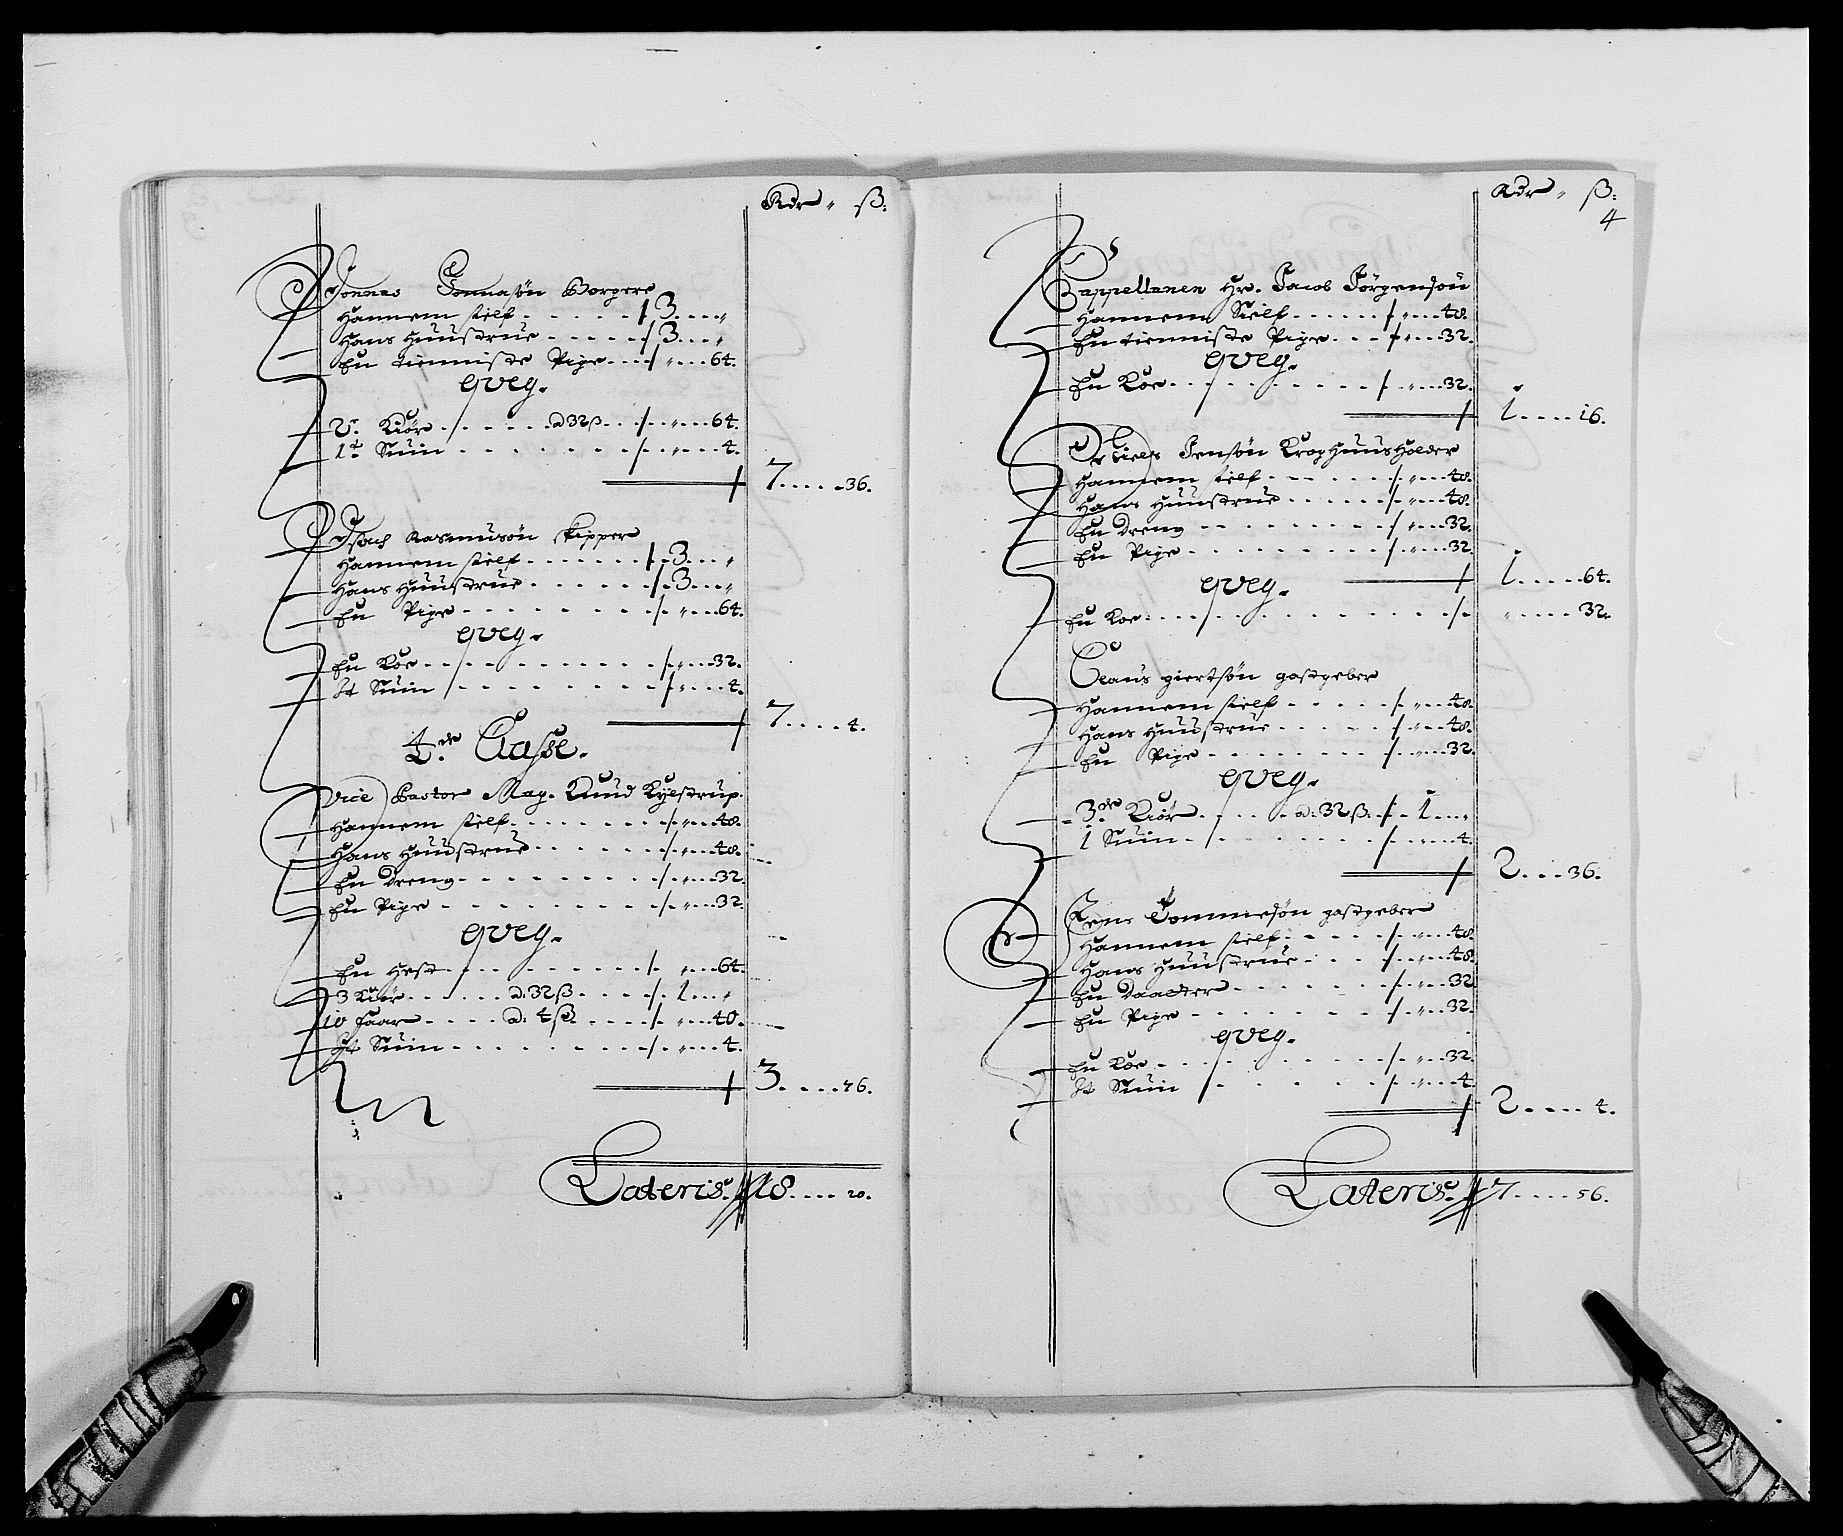 Rdr " ß:
Jonnas Jonnasøn Borgere
Hannem sielf - - - - - 3 - - - "
Hans Huustrue - - - - - 3 - - - "
En tienniste Pige - - - " - - - 64.
qveg.
2de Kiør - - - - a 32 ß - - - " - - - 64.
1t Suin - - - - - - - " - - - 4.
7 - - - - 36.
Isach Rasmusøn skipper
Hannem sielf - - - - - - 3 - - - "
Hans Huustrue - - - - - - 3 - - - "
En Pige - - - - - - - " - - - 64.
qveg.
En Koe - - - - - - - " - - - 32.
It Suin - - - - - - - " - - - 4.
7 - - - - 4.
4de Classe.
Vice Pastor Mag. Knud Kylstrup.
Hannem sielf - - - - - - " - - - 48.
Hans Huustrue - - - - - - " - - - 48.
En Dreng - - - - - - - " - - - 32.
En Pige - - - - - - - " - - - 32.
qveg.
En Hest - - - - - - - " - - - 64.
3 Kiør - - - - a: 32 ß - - - 1 - - - "
10 Faar - - - - a: 4 ß - - - " - - - 40.
It Suin - - - - - - - " - - - 4.
3 - - - - 76.
Lateris. 18 - - - - 20.
Rdr " ß:
4
Cappellanen Hr. Jacob Jørgensøn
Hannem Sielf - - - - - - " - - - 48.
En tienniste Pige - - - " - - - 32.
qveg.
En Koe - - - - - - - " - - - 32.
1 - - - - 16.
Niels Jensøn Kroghuus Holder
Hannem sielf - - - - - - " - - - 48.
Hans Huustrue - - - - - - " - - - 48.
En Dreng - - - - - - - " - - - 32.
En Pige - - - - - - - " - - - 32.
1 - - - - 64.
qveg.
En Koe - - - - - - - " - - - - 32.
Claus giertsøn gastgeber
Hannem sielf - - - - - " - - - 48.
Hans Huustrue - - - - - " - - - 48.
En Pige - - - - - - - " - - - 32.
qveg.
3de Kiør - - - - a: 32 ß: - - 1 - - - "
1 Suin - - - - - - - " - - - 4.
2 - - - 36.
Jens Tommesøn gastgeber
Hannem sielf - - - - - " - - - 48.
Hans Huustrue - - - - " - - - 48.
En Daatter - - - - - - " - - - 32
En Pige - - - - - - - " - - - 32.
qveg.
En Koe - - - - - - - " - - - 32.
It Suin - - - - - - - " - - - 4.
2 - - - - 4.
Lateris. 7 - - - - 56.